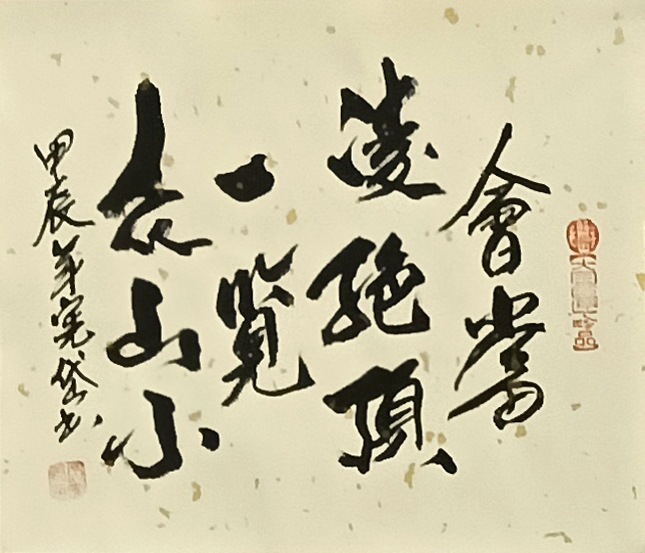 會當
凌絕頂
一覽
众山小
甲辰年宪岱书